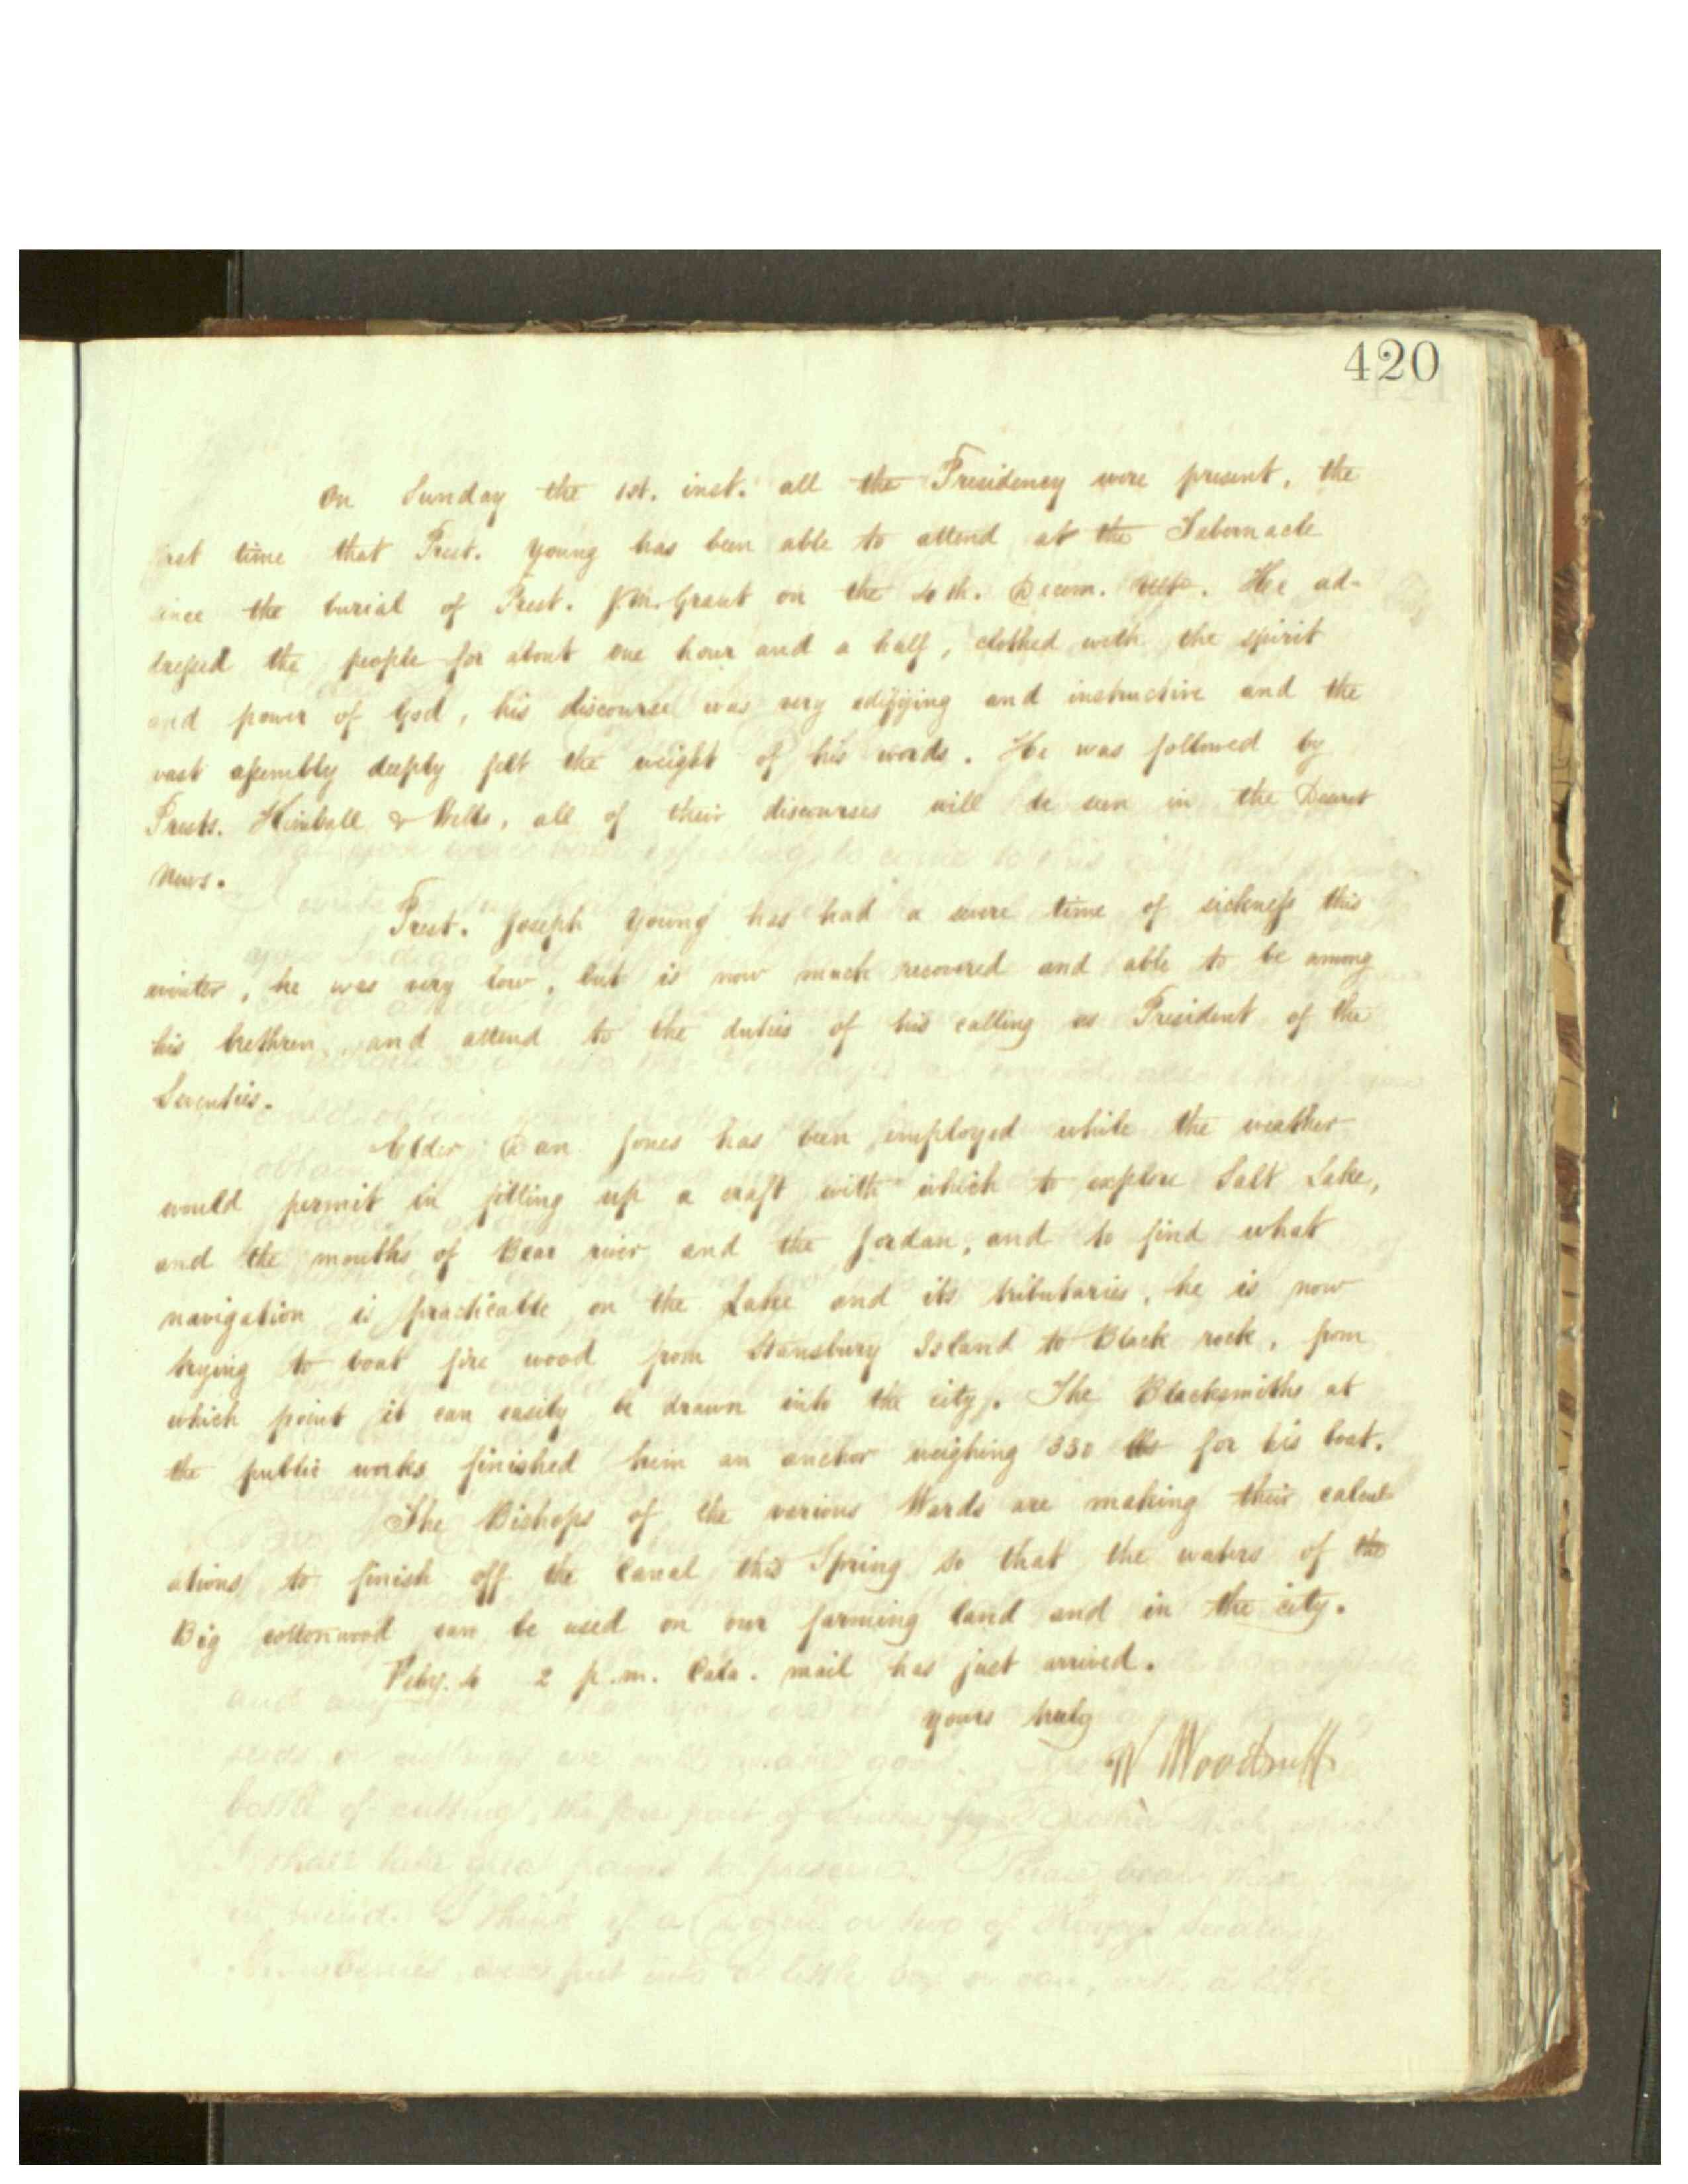 420
On Sunday the 1st. inst. all the Presidency were present, the
first time that Prest. Young has been able to attend at the Tabernacle
since the burial of Prest. J.M. Grant on the 4th. Decem. ult. He ad-
dressed the people for about one hour and a half, clothed with the spirit
and power of God, his discourse was very edifying and instructive and the
vast assembly deeply felt the weight of his words. He was followed by
Prests. Kimball & Wells, all of their discourses will be seen in the Deseret
News.
Prest. Joseph Young has had a severe time of sickness this
winter, he was very low, but is now much recovered and able to be among
his brethren and attend to the duties of his calling as President of the
Seventies.
Elder Dan Jones has been employed while the weather
would permit in fitting up a craft with which to explore Salt Lake,
and the mouths of Bear river and the Jordan, and to find what
navigation is practicable on the Lake and its tributaries, he is now
trying to boat fire wood from Stansbury Island to Black rock, from
which point it can easily be drawn into the city. The Blacksmiths at
the public works finished him an anchor weighing 350 lbs for his boat.
The Bishops of the various Wards are making their calcul-
ations to finish off the Canal this Spring so that the waters of the
Big cottonwood can be used on our farming land and in the city.
Feby. 4 2 p.m. Cala. mail has just arrived.
yours truly
W Woodruff